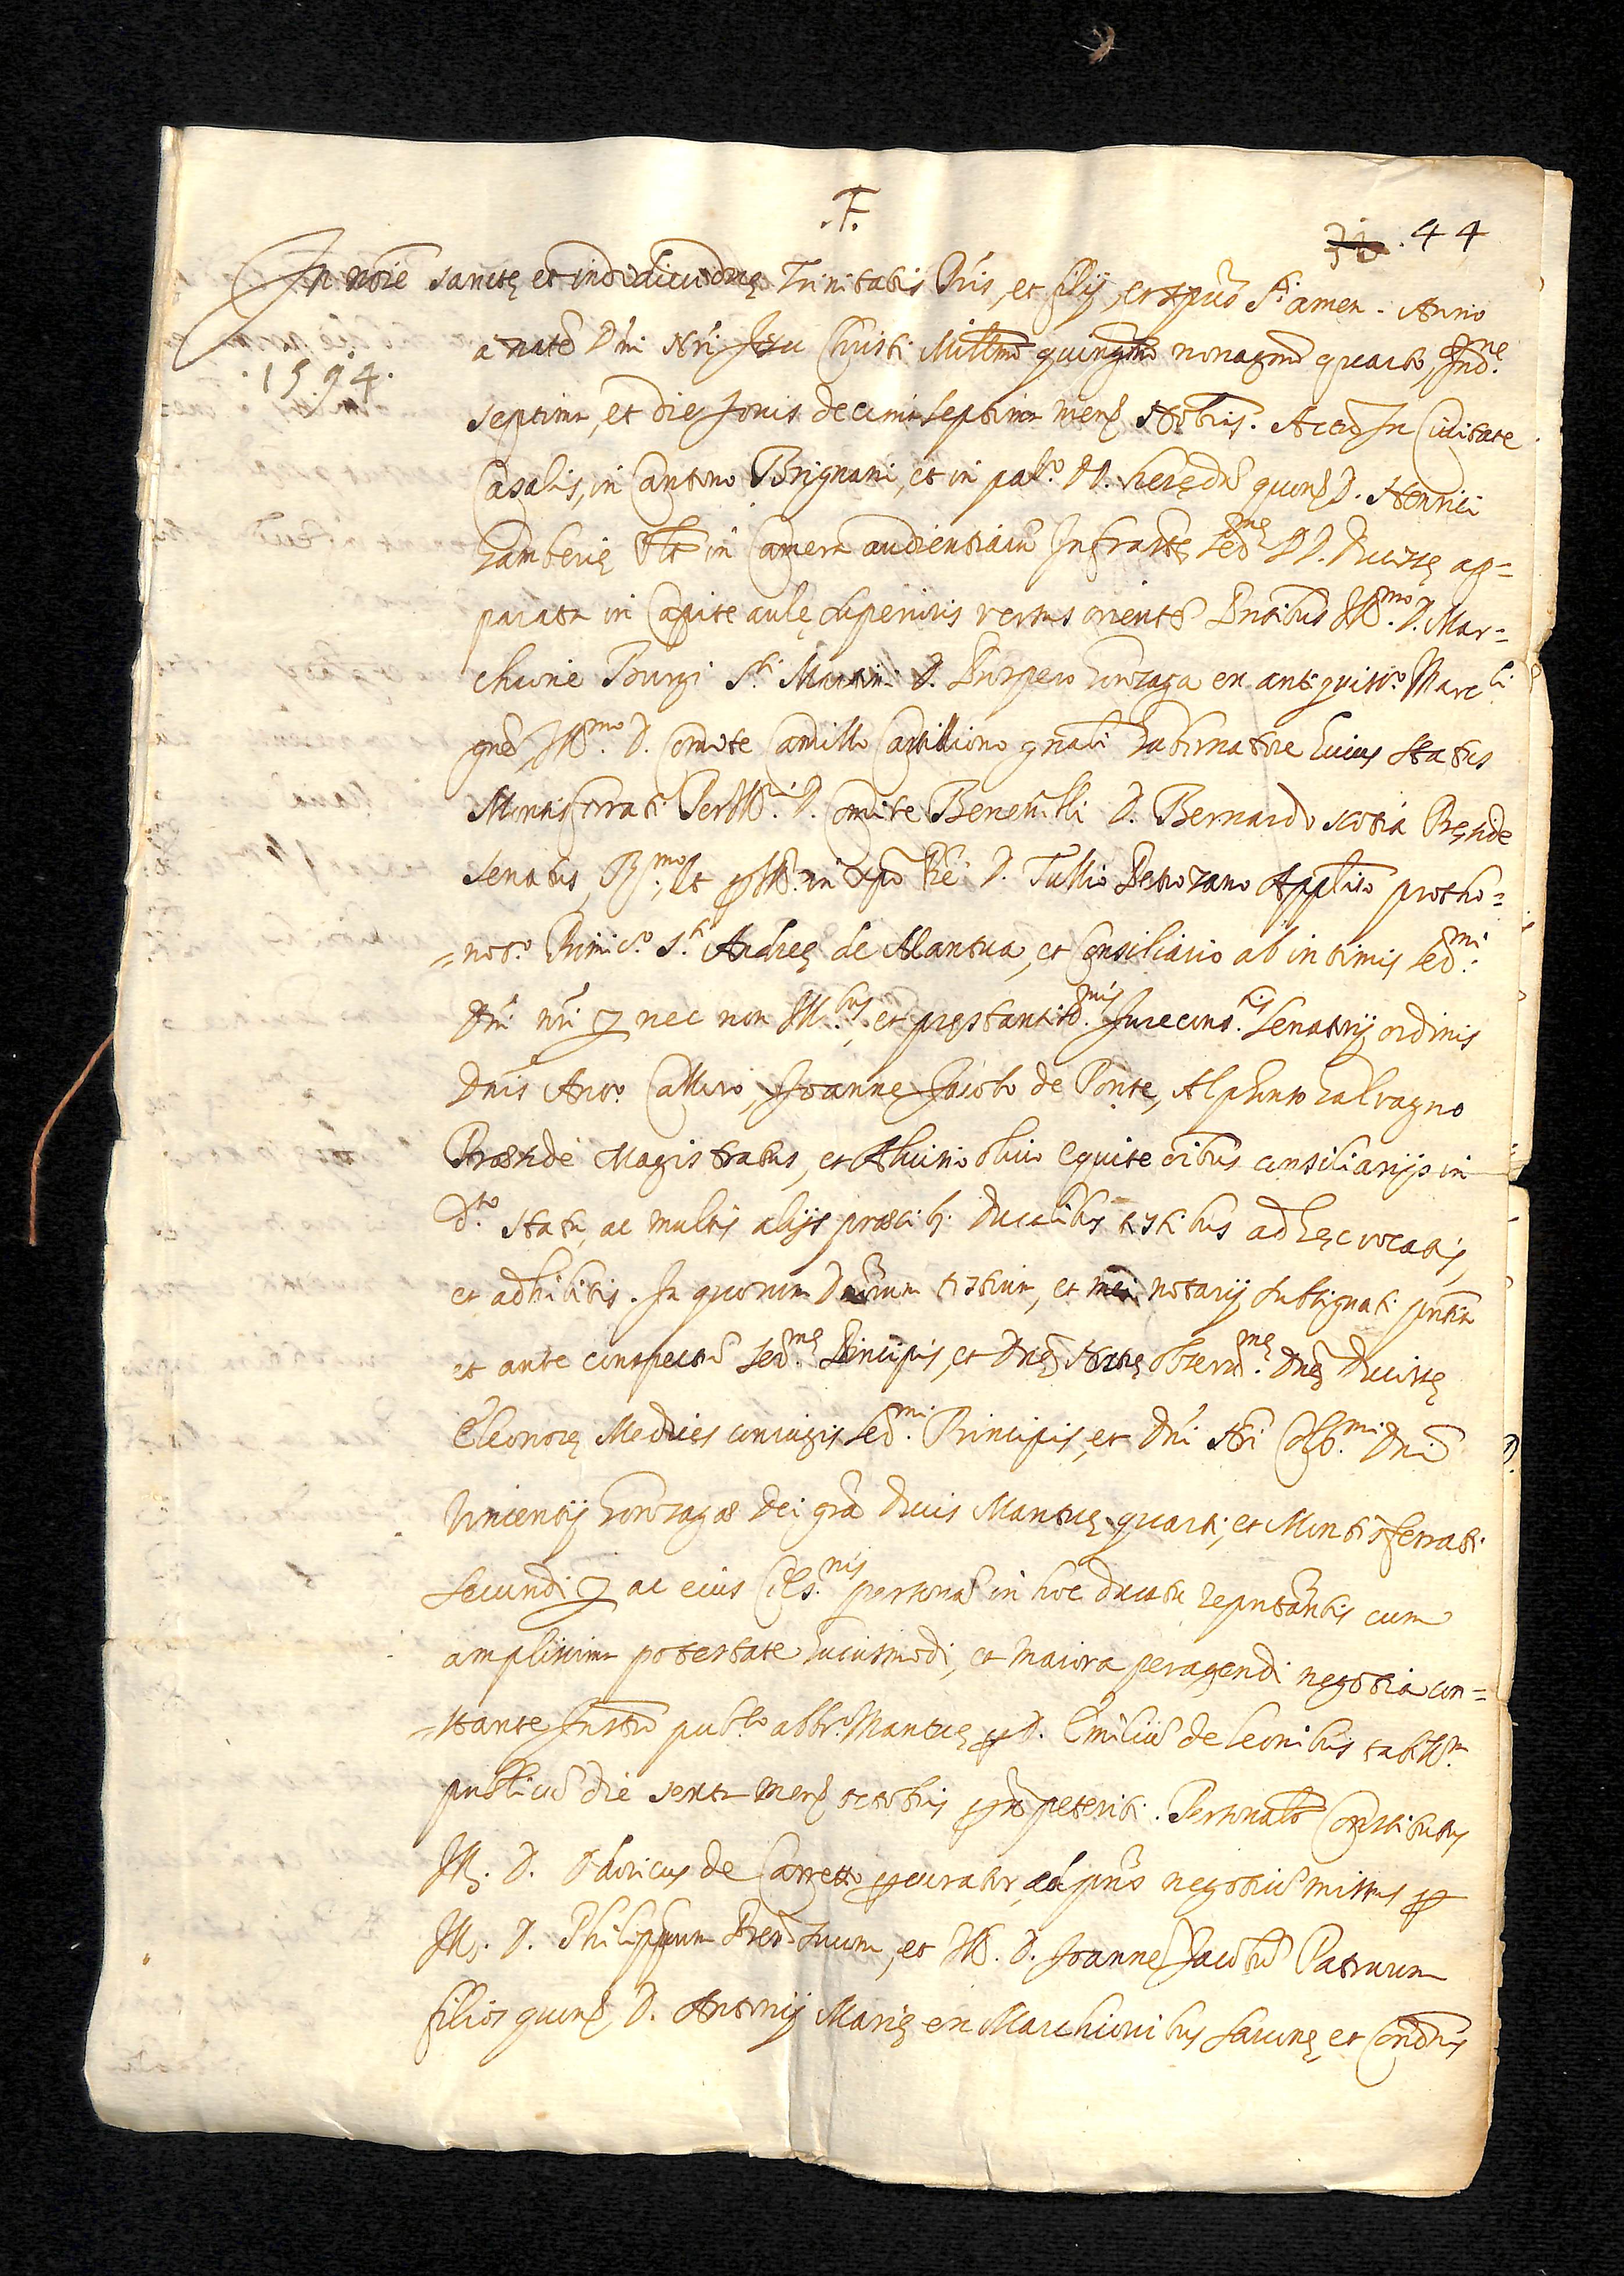 .F.
. 44
In noīe Sanctę et individuę Trinitatis Pr̄is, et filij, et spūs S.ti amen. Anno
.1594.
a natē Dn̄i Nr̄i Jesu Christi Mill̄mo quing̃mo nonag̃mo quarto, Ind.ne
septima, et die Jovis decimaseptima mens̄ Nōbris. Actū In Civitate
Casalis, in Cantono Brignani, et in pal.o DD. heredū quond̄ D. Henrici
in Camera audientiarū Infrãttę Ser.mę DD. Ducissę ap=
parata in Capite aulę superioris versus orientē Pn̄tibus Ill.mo D. Mar=
chione Burgi S.ti Martini D. Prospero Gonzaga ex antiquiss.o March.li
gn̄e, Ill.mo D. Comite Camillo Castiliono gn̄ali Gubernatore huius Status
Montisferrati Perill.i D. Comite Benevelli D. Bernardo Scotia Pręside
Senatus, R.mo, et Ill. in Xp̄o D. Tullio Petrozano App̄lico protho=
=not.o Primic.o S.ti Andreę de Mantua, et Consiliario ab intimis Ser.mi
Dn̄i nr̄i nec non Ill.bus, et pręstantiss.mis Jurecons.tis Senatorij ordinis
Dn̄is Calloro, Joanne Jacobo de Ponte, Alphonso Galvagno
Pręside Magistratus, et equite oībus consiliarijs in
d.to Statu, ac multis alijs Ducalibus testibus ad hęc vocatis,
et adhibitis. In quorum Dn̄orum testium, et mei notarij subsignati pn̄tia
et ante conspectū Ser.mę Principis, et Dn̄ę Nr̄ę obser.mę Dn̄ę Ducissę
Eleonorę Medices coniugis Ser.mi Principis, et Dn̄i Nr̄i Col.mi Dn̄i
Vincentij Gonzagæ Dei grā Ducis Mantuę quarti, et Montisferrati
Secundi ac eius Cels.nis personā in hoc ducatu repn̄tantis cum
amplissima potestate huiusmodi, et maiora peragendi negotia con=
=stante Inst̄o pub.co Mantuę ꝑ D. Emiliū de Leonibus tabell.m
publicū die sexta mens̄ octobris p̄x̄ peteriti. Personal̄r Constitutus
Ill. D. Odoricus de Carretto procurator, ad pn̄s negotiū missus ꝑ
Ill. D. Philippum suum, et Ill. D. Joannē Jacobū Patruum
filios quond̄ D. Antonij Marię ex Marchionibus Savonę, et Cond̄nis